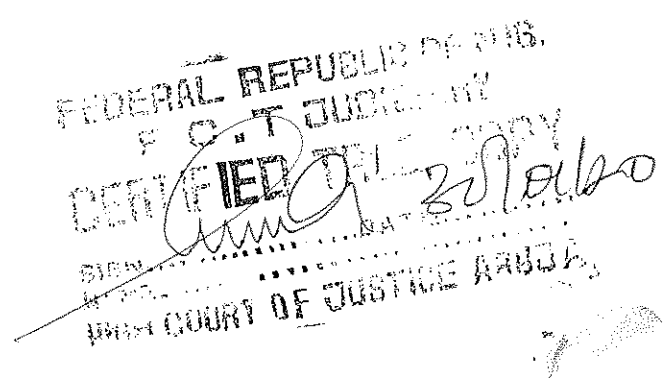 FEDERAL REPUBLIC OF NIG.
F.C.T JUDICIARY
CERTIFIED TRUE COPY
SIGN DATE
HIGH COURT OF JUSTICE ABUJA